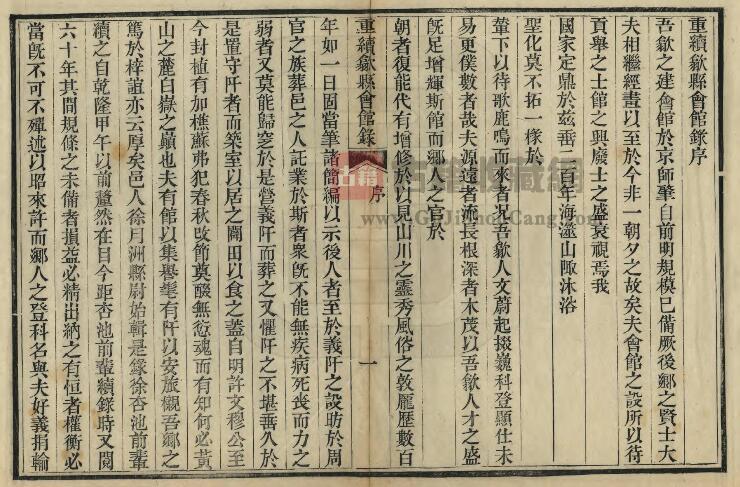 重續歙縣會館錄序
吾歙之建會館於京師肇自前明規模已備厥後鄉之賢士大
夫相繼經畫以至於今非一朝夕之故矣夫會館之設所以待
貢舉之士館之興廢士之盛衰視焉我
國家定鼎於茲垂二百年海澨山陬沐浴
聖化莫不拓一樣於
輦下以待歌鹿鳴而來者以吾歙人文蔚起掇巍科登顯仕未
易更僕數者哉夫源遠者流長根深者木茂以吾歙人才之盛
旣足增輝斯館而鄉人之官於
朝者復能代有增修於以見山川之靈秀風俗之敦龎歷數百
重續歙縣會館錄 序 一
年如一日固當筆諸簡編以示後人者至於義阡之設昉於周
官之族葬邑之人託業於斯者衆旣不能無疾病死喪而力之
弱者又莫能歸窆於是營義阡而葬之又懼阡之不堪垂久於
是置守阡者而築室以居之闢田以食之蓋自明許文穆公至
今封植有加樵蘇弗犯春秋攷節奠醊無愆魂而有知何必黃
山之麓白嶽之巔也夫有館以集譽髦有阡以安旅櫬吾鄉之
篤於梓誼亦云厚矣邑人徐月洲縣尉始輯是錄徐杏池前輩
續之自乾隆甲午以前釐然在目今距杏池前輩續錄時又閱
六十年其間規條之未備者損益必精出納之有恒者權衡必
當旣不可不殫述以昭來許而鄉人之登科名與夫好義捐輸
古籍
www.GuJiShuCang.com